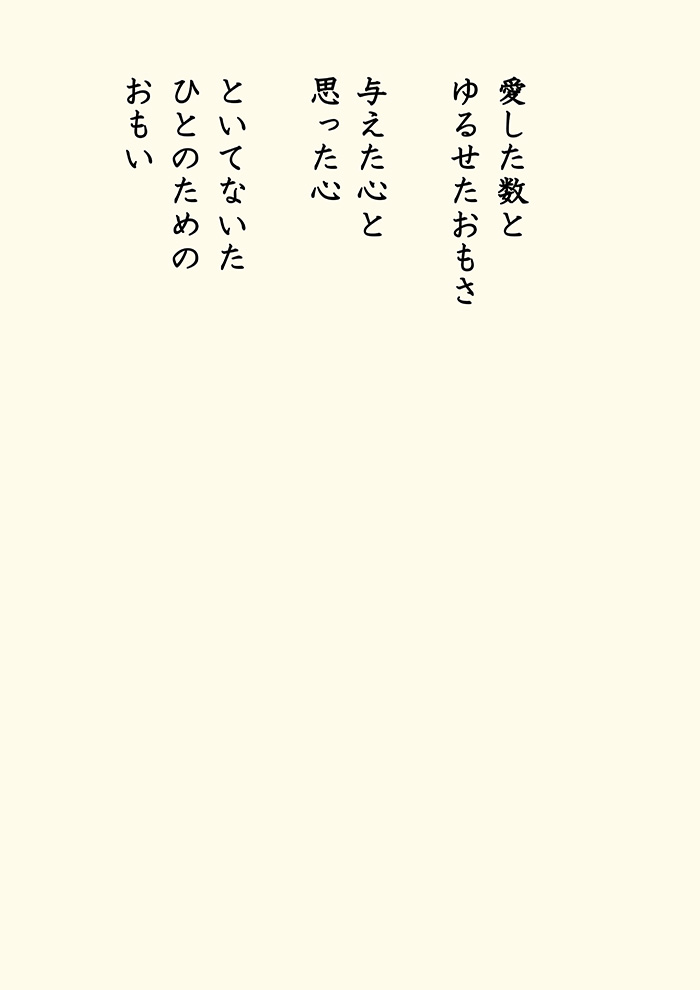 愛した数と
ゆるせたおもさ
与えた心と
思った心
といてないた
ひとのための
おもい